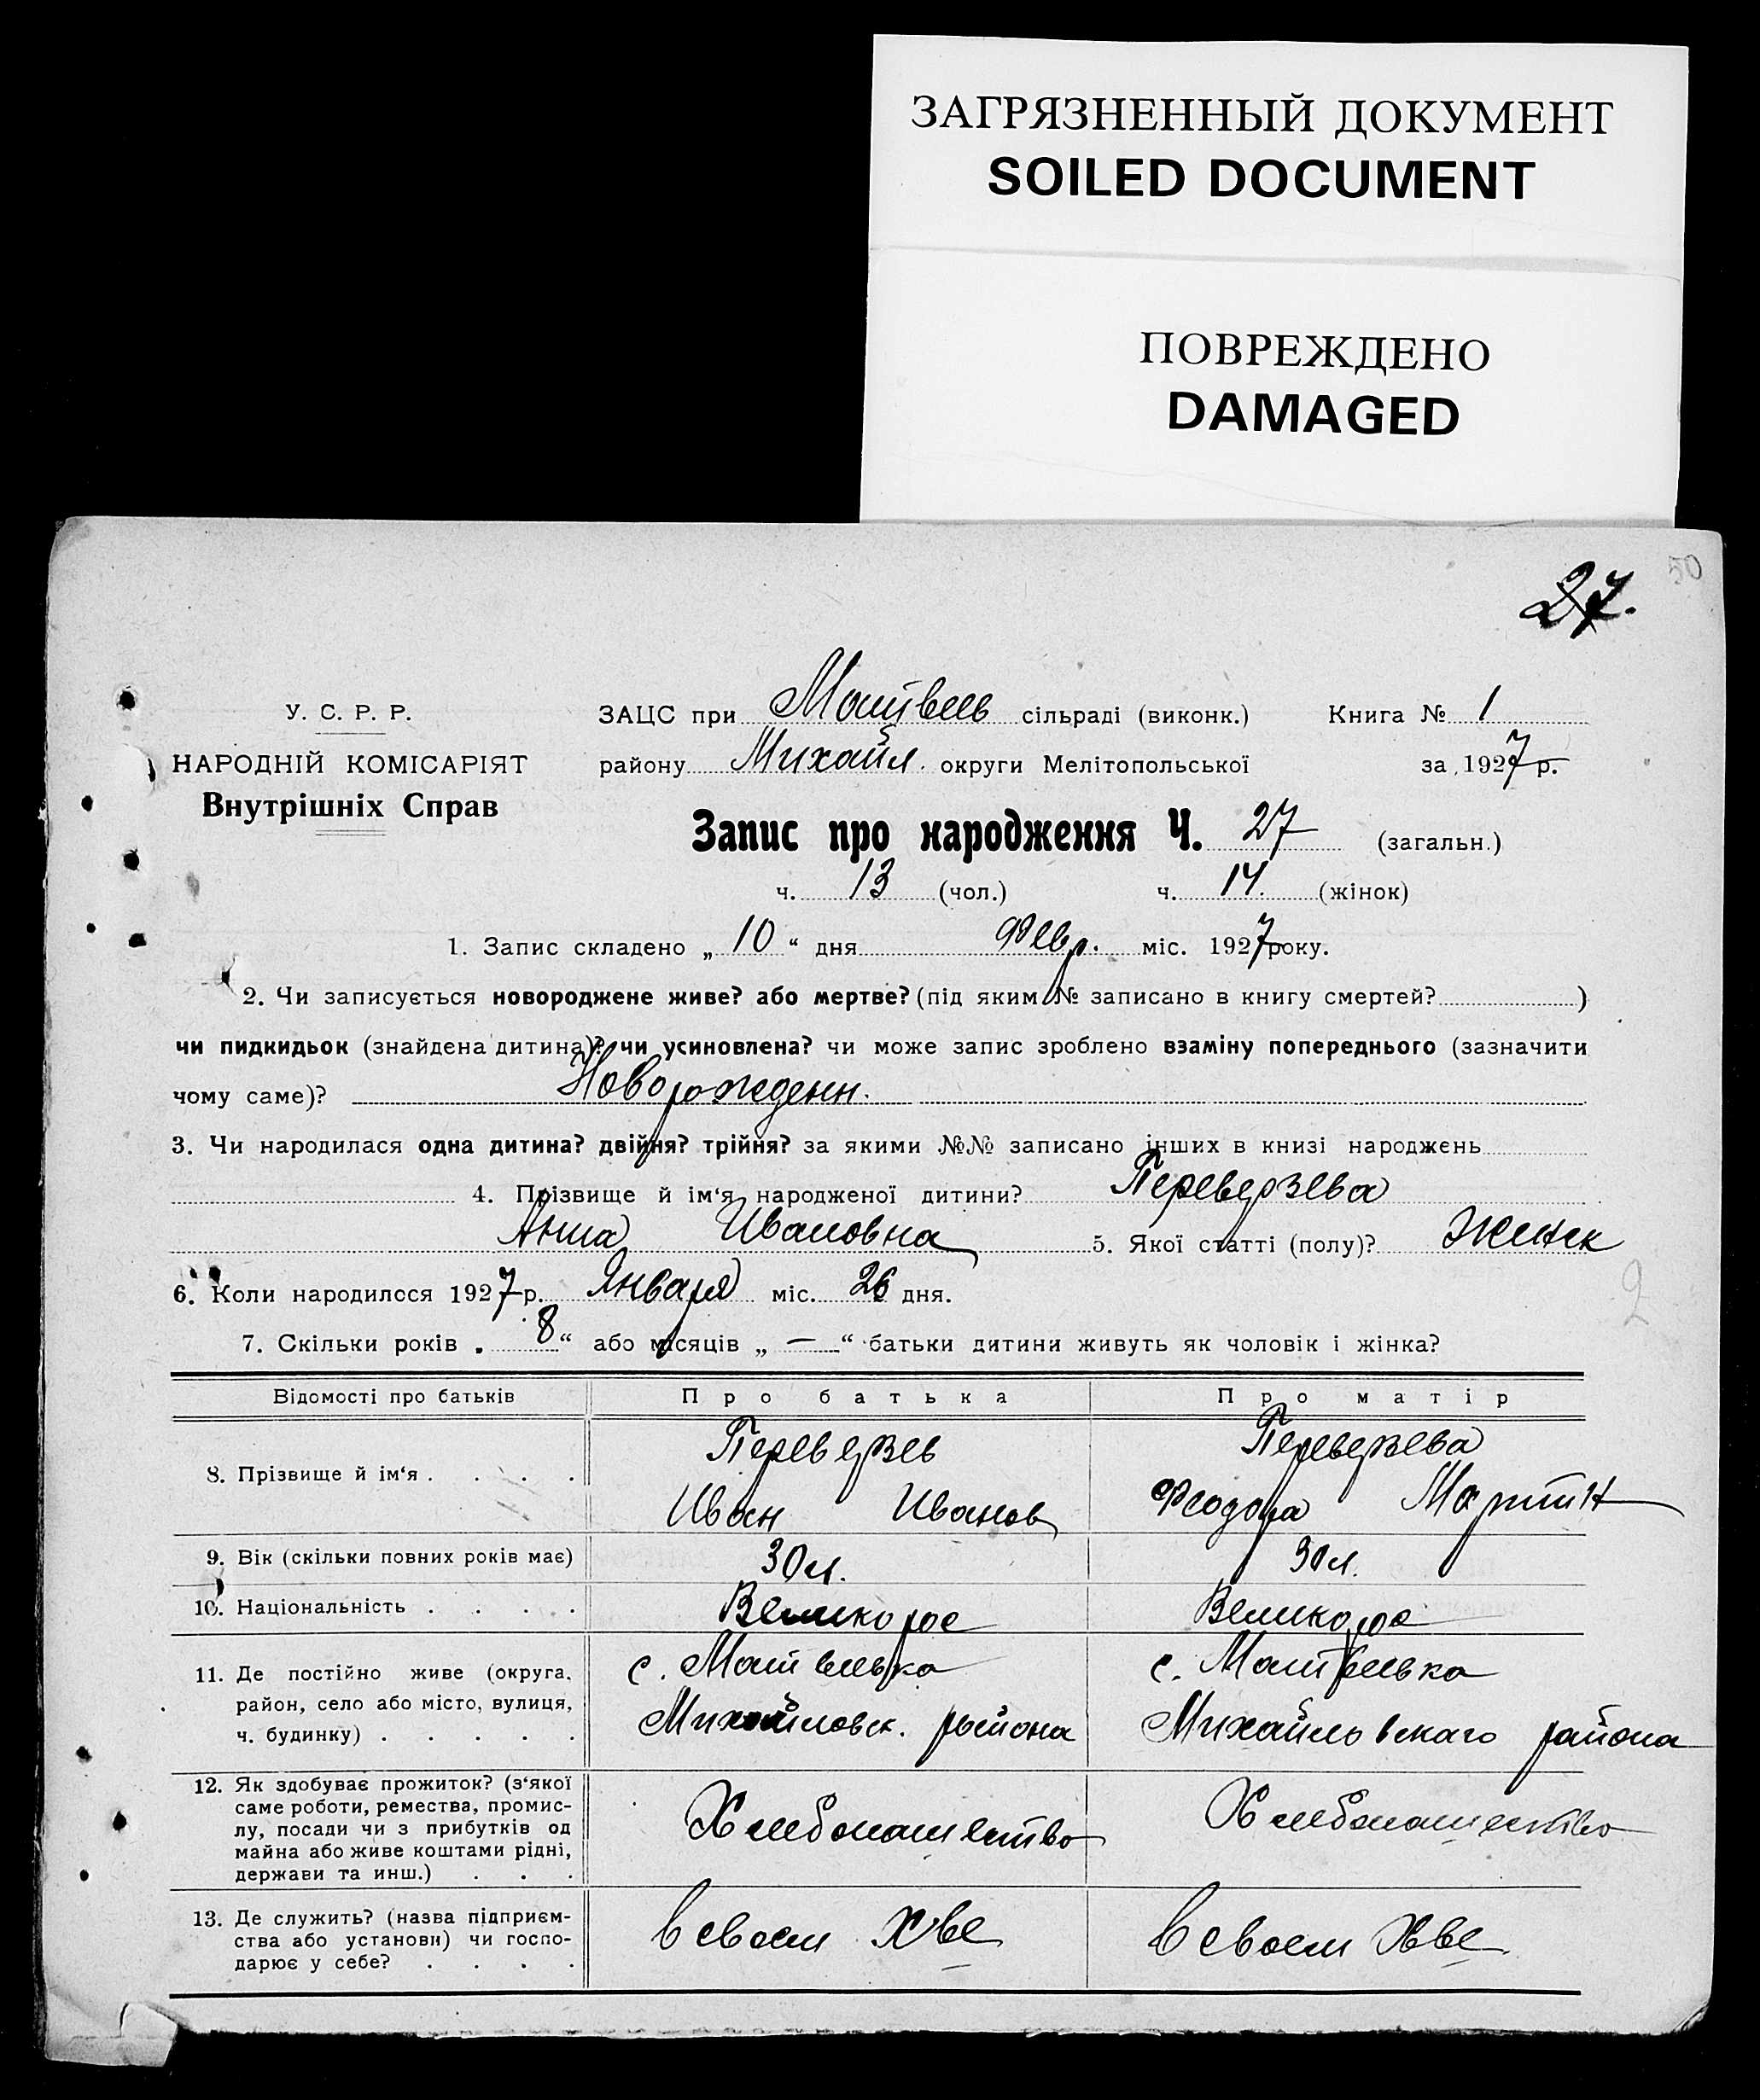 ЗАГРЯЗНЕННЫЙ ДОКУМЕНТ
SOILED DOCUMENT
ПОВРЕЖДЕНО
DAMAGED
50
27.
У. С. Р. Р.
НАРОДНІЙ КОМІСАРІЯТ
Внутрішніх Справ
ЗАЦС при Матвеев сільраді (виконк.) Книга № 1
району Михайл. округи Мелітопольської за 1927 р.
Запис про народження Ч. 27 (загальн.)
ч. 13 (чол.) ч. 14. (жінок)
1. Запис складено „ 10 “ дня Февр. міс. 1927 року.
2. Чи записується новороджене живе? або мертве? (під яким № записано в книгу смертей? )
чи пидкидьок (знайдена дитина)? чи усиновлена? чи може запис зроблено взаміну попереднього (зазначити
чому саме)? Новорожденн.
3. Чи народилася одна дитина? двійня? трійня? за якими №№ записано інших в книзі народжень
4. Прізвище й ім‘я народженої дитини? Переверзева
Анна Ивановна 5. Якої статті (полу)? Женск
6. Коли народилося 1927 р. Января міс. 26 дня.
2
7. Скільки років „ 8 “ або місяців „ — “ батьки дитини живуть як чоловік і жінка?
Відомості про батьків Про батька Про матір
8. Прізвище й ім‘я . . . . Переверзев Переверзева
Иван Иванов Феодора Мартин
9. Вік (скільки повних років має) 30 л. 30 л.
10. Національність . . . . Великорос Великорос
11. Де постійно живе (округа, с. Матвеевка с. Матвеевка
район, село або місто, вулиця,
ч. будинку) . . . . . Михайловск. района Михайловскаго района
12. Як здобуває прожиток? (з‘якої
саме роботи, ремества, промис-
лу, посади чи з прибутків од Хлебопашество Хлебопашество
майна або живе коштами рідні,
держави та инш.) . . .
13. Де служить? (назва підприєм-
ства або установи) чи госпо- в своем х-ве в своем х-ве
дарює у себе? . . . .